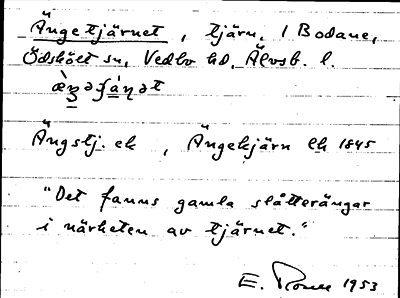 Ängetjärnet, tjärn, i Bodane,
Ödskölt sn, Vedbo hd, Älvsb. l.
Ängstj. ek, Ängekjärn ek 1845
"Det fanns gamla slåtterängar
i närheten av tjärnet."
E. 1953